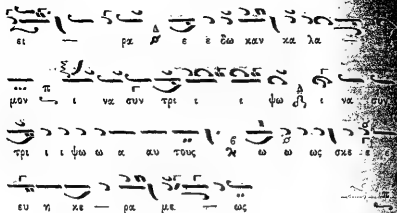 ει — ρα ε ε δω καν κα λα
μον ι να συν τρι ι ι ψω ι να συν
τρι ι ι ψω ω α αυ τους ω ω ως σκε ε ε
ευ η κε — ρα με — ως